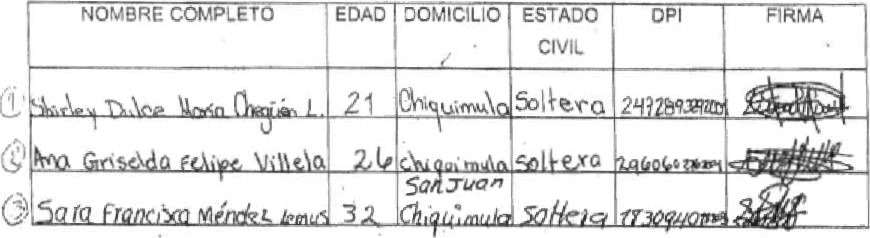 NOMBRE COMPLETO EDAD DOMICILIO ESTADO CIVIL DPI FIRMA
① Shirley Dulce María Chegüén L. 21 Chiquimula Soltera
② Ana Griselda Felipe Villela 26 Chiquimula Soltera
③ Sara Francisca Méndez Lemus 32 San Juan Chiquimula Soltera